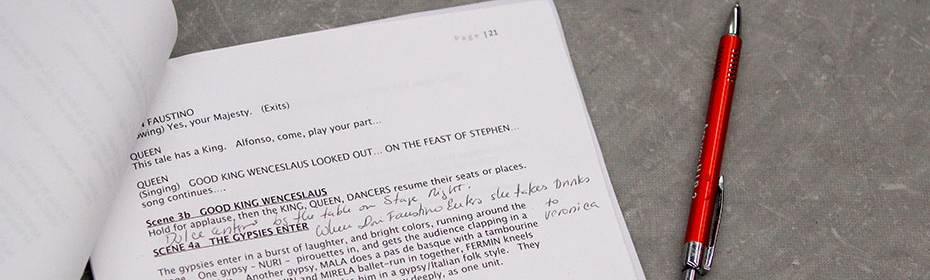 Page | 21
FAUSTINO
owing) Yes, your Majesty. (Exits)
QUEEN
This tale has a King. Alfonso, come, play your part...
QUEEN
(Singing) GOOD KING WENCESLAUS LOOKED OUT... ON THE FEAST OF STEPHEN...
song continues....
Scene 3b GOOD KING WENCESLAUS
Hold for applause, then the KING, QUEEN, DANCERS resume their seats or places.
Dolce enter by the table on Stage Right.
SCENE 4a THE GYPSIES ENTER When Don Faustino Enters she takes Drinks
to
veronica
The gypsies enter in a burst of laughter, and bright colors, running around the
One gypsy - NURI - pirouettes in, and gets the audience clapping in a
Another gypsy, MALA does a pas de basque with a tambourine
and MIRELA ballet-run in together, FERMIN kneels
him in a gypsy/Italian folk style. They
deeply, as one unit.